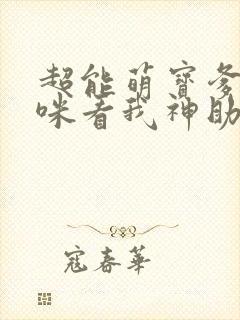 超能萌寶爹
咪看我神助
寇春華